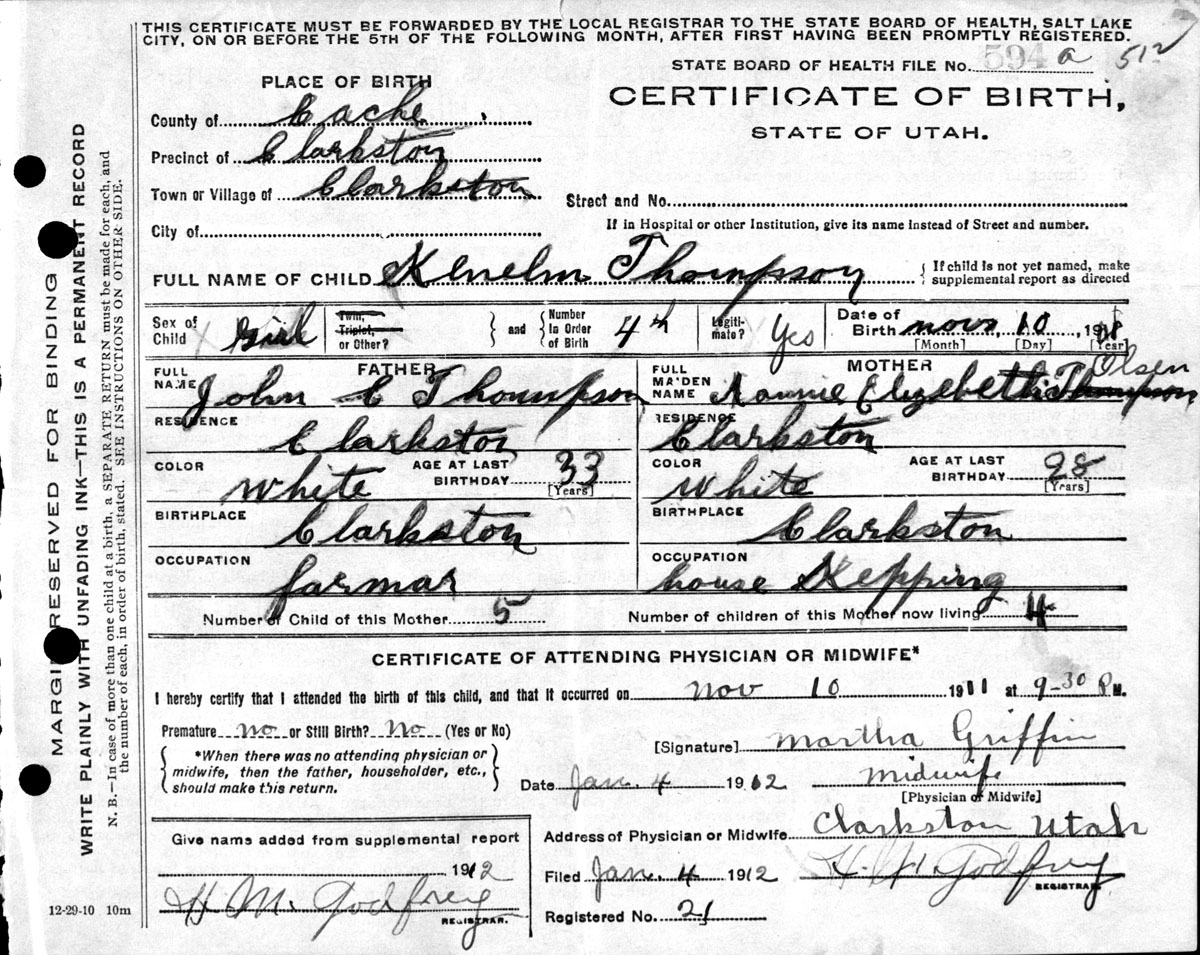 THIS CERTIFICATE MUST BE FORWARDED BY THE LOCAL REGISTRAR TO THE STATE BOARD OF HEALTH, SALT LAKE
CITY, ON OR BEFORE THE 5TH OF THE FOLLOWING MONTH, AFTER FIRST HAVING BEEN PROMPTLY REGISTERED.
STATE BOARD OF HEALTH FILE No. 594 a 512
PLACE OF BIRTH
CERTIFICATE OF BIRTH,
STATE OF UTAH.
County of Cache
Precinct of Clarkston
Town or Village of Clarkston
Street and No.
City of
If in Hospital or other Institution, give its name instead of Street and number.
FULL NAME OF CHILD Klnelm Thompson
If child is not yet named, make
supplemental report as directed
Sex of Child Girl
Twin, Triplet, or Other?
and Number In Order of Birth 4th
Legiti-mate? Yes
Date of Birth Nov 10, 19
[Month] [Day] [Year]
FATHER
FULL NAME John C Thompson
MOTHER
FULL MAIDEN NAME Nannie Elizebeth Thompson Olsen
RESIDENCE Clarkston
RESIDENCE Clarkston
COLOR White AGE AT LAST BIRTHDAY 33 [Years]
COLOR White AGE AT LAST BIRTHDAY 28 [Years]
BIRTHPLACE Clarkston
BIRTHPLACE Clarkston
OCCUPATION farmar
OCCUPATION house Kepping
Number of Child of this Mother 5 Number of children of this Mother now living 4
CERTIFICATE OF ATTENDING PHYSICIAN OR MIDWIFE*
I hereby certify that I attended the birth of this child, and that it occurred on Nov 10 1911 at 9-30 P M.
Premature no or Still Birth? No (Yes or No)
*When there was no attending physician or
midwife, then the father, householder, etc.,
should make this return.
[Signature] Martha Griffin
Date Jan. 4 1912 Midwife
[Physician or Midwife]
Give name added from supplemental report
1912
H. M. Godfrey
REGISTRAR.
Address of Physician or Midwife Clarkston Utah
Filed Jan. 4 1912 H. M. Godfrey
REGISTRAR
Registered No. 21
12-29-10 10m
MARGIN RESERVED FOR BINDING
WRITE PLAINLY WITH UNFADING INK—THIS IS A PERMANENT RECORD
N. B.—In case of more than one child at a birth, a SEPARATE RETURN must be made for each, and
the number of each, in order of birth, stated. SEE INSTRUCTIONS ON OTHER SIDE.